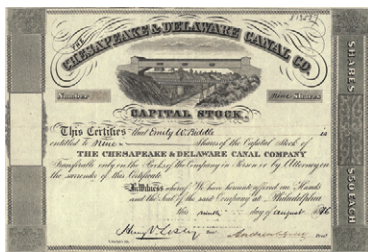 THE
CHESAPEAKE & DELAWARE CANAL CO.
Number
Nine Shares
CAPITAL STOCK.
This Certifies that Emily W. Biddle is
entitled to Nine Shares of the Capital Stock of
THE CHESAPEAKE & DELAWARE CANAL COMPANY
Transferable only on the Books of the Company in Person or by Attorney on
the surrender of this Certificate.
In Witness whereof We have hereunto affixed our Hands
and the Seal of the said Company at Philadelphia
this ninth day of August 1876
Henry V. Lesley
SHARES
$50 EACH